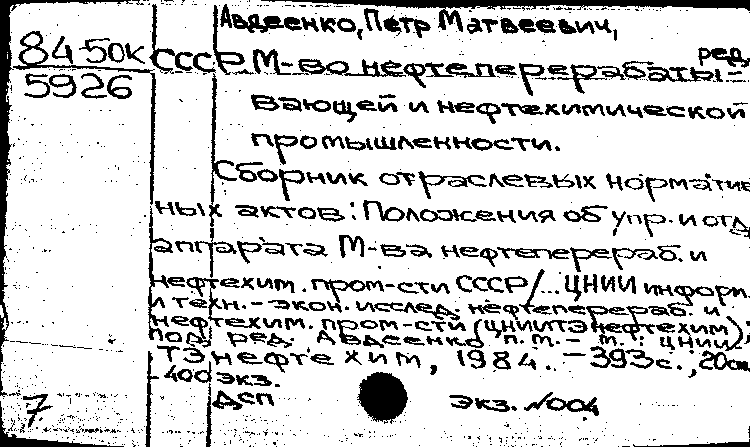 Авдеенко, Петр Матвеевич,
ред.
84-50к СССР. М-во нефтеперерабаты-
5926
вающей и нефтехимической
промышленности.
Сборник отраслевых норматив
ных актов: Положения об упр. и отд.
аппарата М-ва нефтеперераб. и
нефтехим. пром-сти СССР/... ЦНИИ информ.
и техн.-экон. исслед. нефтеперераб. и
нефтехим. пром-сти (ЦНИИТЭнефтехим);
под ред. Авдеенко П.М. - М.: ЦНИИ
ТЭнефтехим, 1984. - 393с.; 20см
- 400 экз.
ДСП экз. №004
7